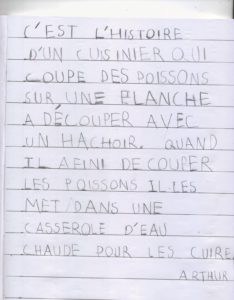 C'EST L'HISTOIRE
D'UN CUISINIER QUI
COUPE DES POISSONS
SUR UNE PLANCHE
A DÉCOUPER AVEC
UN HACHOIR. QUAND
IL A FINI DE COUPER
LES POISSONS IL LES
MET DANS UNE
CASSEROLE D'EAU
CHAUDE POUR LES CUIRE.
ARTHUR